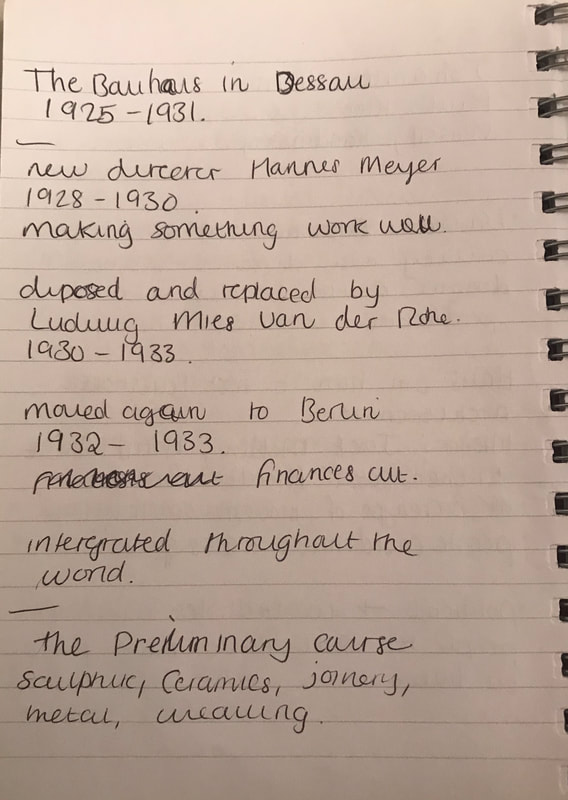 The Bauhaus in Dessau
1925 - 1931.
new direcror Hannes Meyer
1928 - 1930.
making something work well.
deposed and replaced by
Ludwig Mies van der Rohe.
1930 - 1933.
moved again to Berlin
1932 - 1933.
finances cut.
intergrated throughout the
world.
the Preliminary course
sculpture, Ceramics, joinery,
metal, weaving.